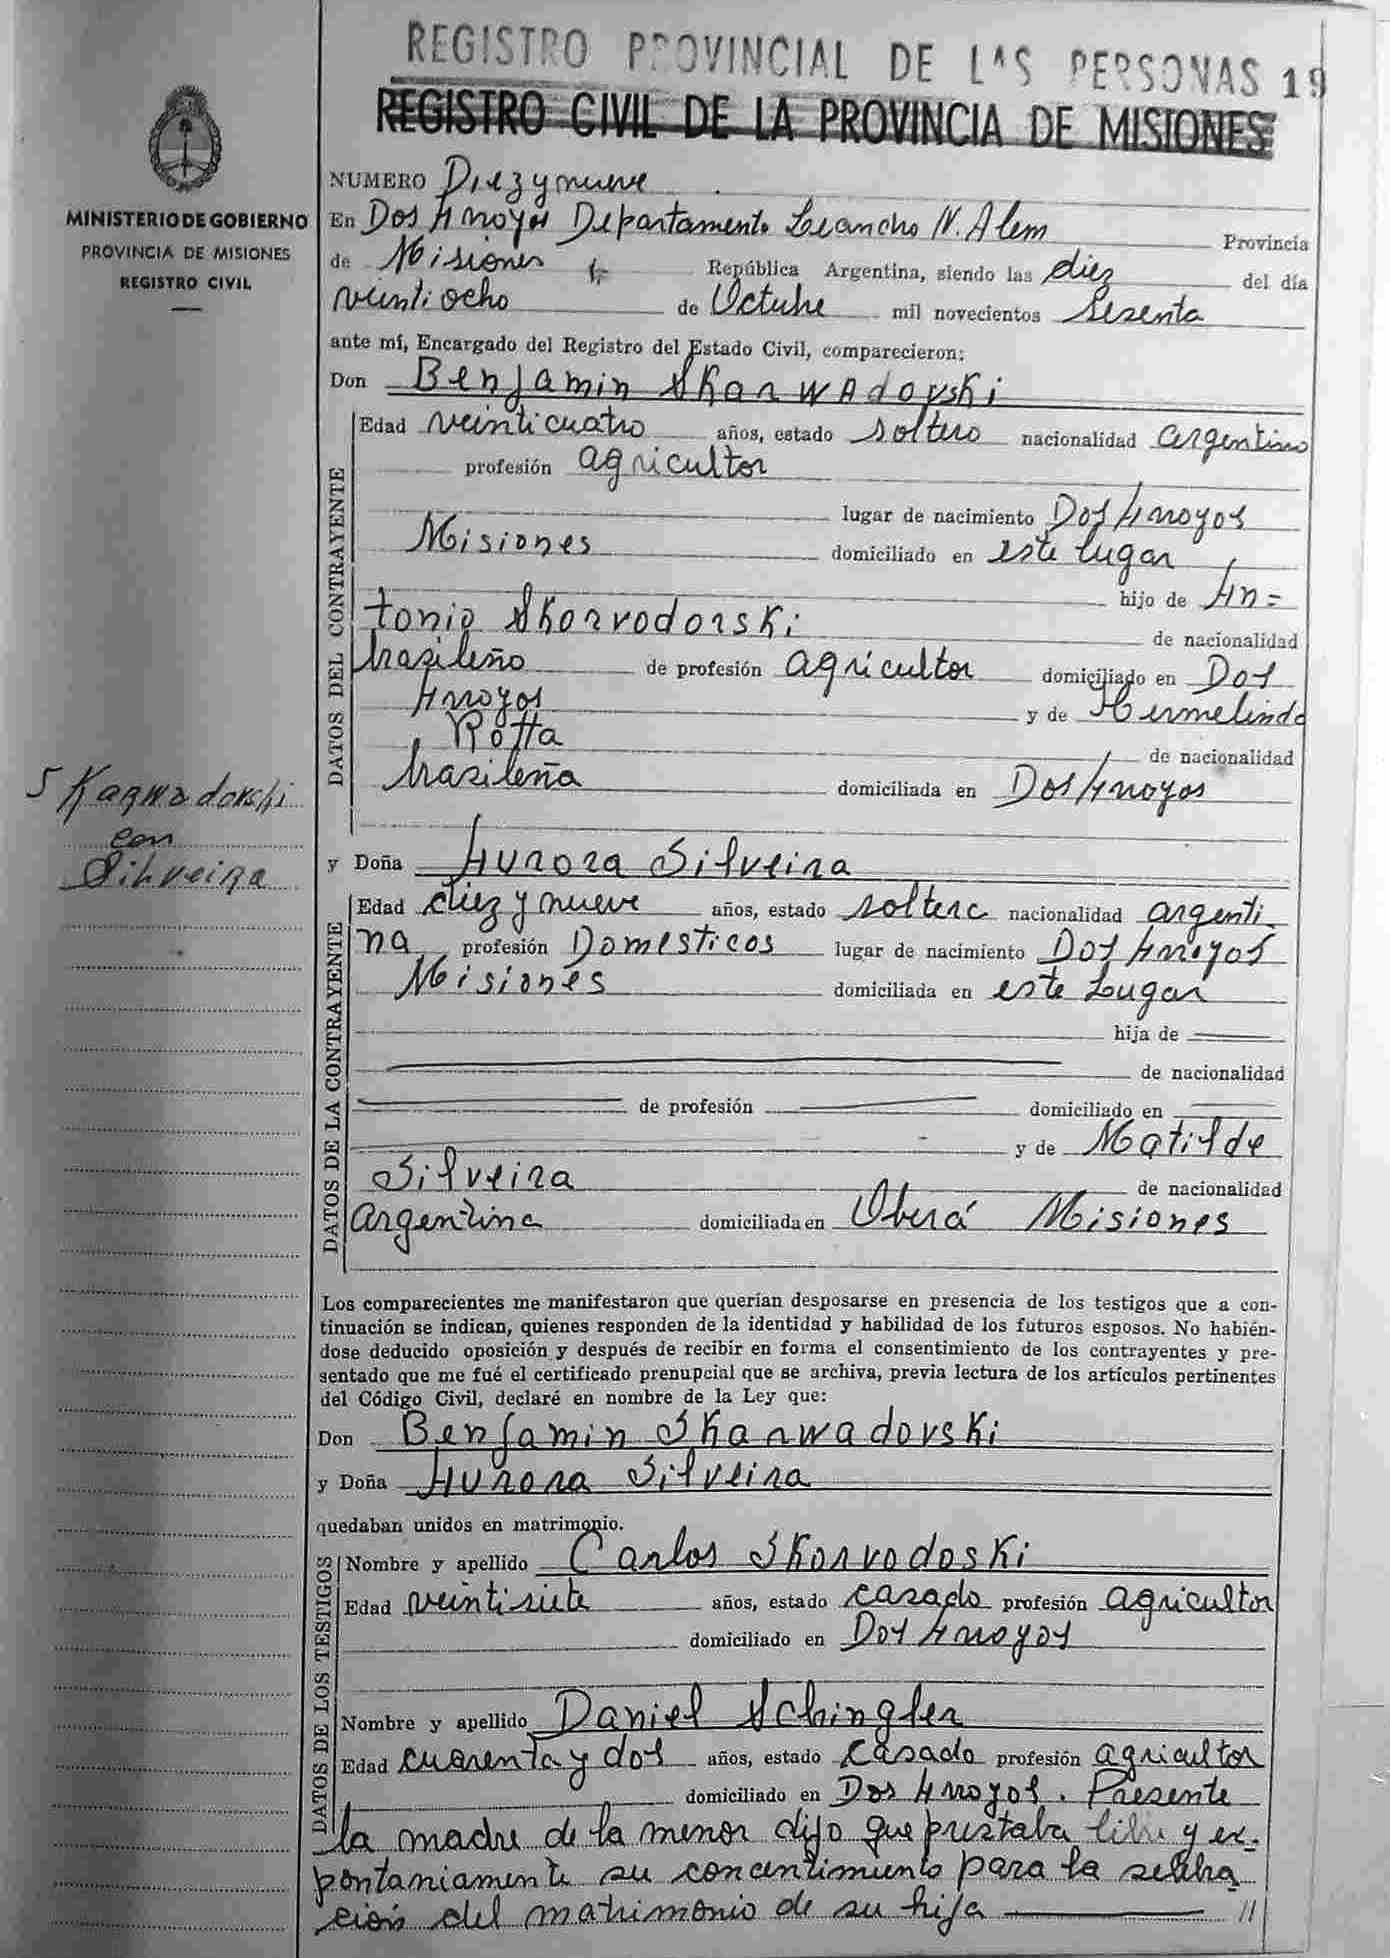 REGISTRO PROVINCIAL DE LAS PERSONAS 19
REGISTRO CIVIL DE LA PROVINCIA DE MISIONES
MINISTERIO DE GOBIERNO
PROVINCIA DE MISIONES
REGISTRO CIVIL
NUMERO Diez y nueve
En Dos Arroyos Departamento Leandro N. Alem Provincia
de Misiones República Argentina, siendo las diez del día
veintiocho de Octubre mil novecientos Sesenta
ante mí, Encargado del Registro del Estado Civil, comparecieron:
Don Benjamin Skarwadovski
DATOS DEL CONTRAYENTE
Edad veinticuatro años, estado soltero nacionalidad argentino
profesión agricultor
lugar de nacimiento Dos Arroyos
Misiones domiciliado en este lugar
hijo de An=
tonio Skorvodorski de nacionalidad
brasileño de profesión agricultor domiciliado en Dos
Arroyos y de Hermelinda
Rotta de nacionalidad
brasileña domiciliada en Dos Arroyos
Skarwadovski
con
Silveira
y Doña Aurora Silveira
DATOS DE LA CONTRAYENTE
Edad diez y nueve años, estado soltera nacionalidad argenti
na profesión Domesticos lugar de nacimiento Dos Arroyos
Misiones domiciliada en este Lugar
hija de
de nacionalidad
de profesión domiciliado en
y de Matilde
Silveira de nacionalidad
argentina domiciliada en Oberá Misiones
Los comparecientes me manifestaron que querían desposarse en presencia de los testigos que a con-
tinuación se indican, quienes responden de la identidad y habilidad de los futuros esposos. No habién-
dose deducido oposición y después de recibir en forma el consentimiento de los contrayentes y pre-
sentado que me fué el certificado prenupcial que se archiva, previa lectura de los artículos pertinentes
del Código Civil, declaré en nombre de la Ley que:
Don Benjamin Skarwadovski
y Doña Aurora Silveira
quedaban unidos en matrimonio.
DATOS DE LOS TESTIGOS
Nombre y apellido Carlos Skorvodoski
Edad veintisiete años, estado casado profesión agricultor
domiciliado en Dos Arroyos
Nombre y apellido Daniel Schingler
Edad cuarenta y dos años, estado casado profesión agricultor
domiciliado en Dos Arroyos. Presente
la madre de la menor dijo que prestaba libre y ex-
pontaniamente su concentimiento para la selebra
ción del matrimonio de su hija //